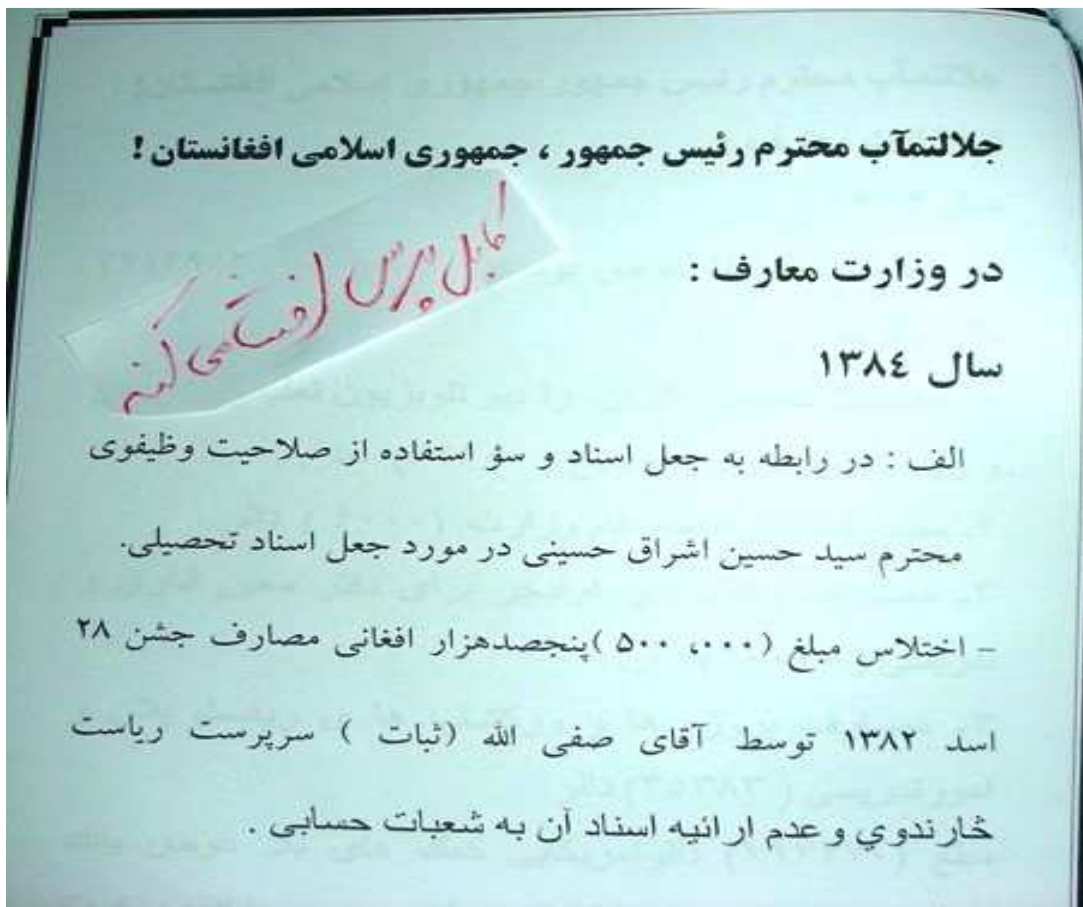 جلالتمآب محترم رئیس جمهور ، جمهوری اسلامی افغانستان !
کابل پرس افشا می کند
در وزارت معارف :
سال ١٣٨٤
الف : در رابطه به جعل اسناد و سؤ استفاده از صلاحیت وظیفوی
محترم سید حسین اشراق حسینی در مورد جعل اسناد تحصیلی.
– اختلاس مبلغ (٥٠٠ ،٠٠٠ )پنجصدهزار افغانی مصارف جشن ٢٨
اسد ١٣٨٢ توسط آقای صفی الله (ثبات ) سرپرست ریاست
څارندوي و عدم ارائیه اسناد آن به شعبات حسابی .